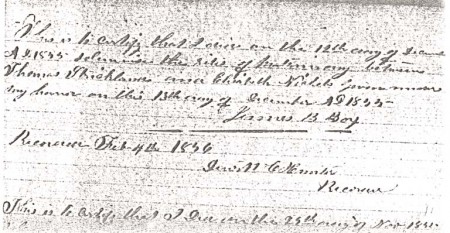 This is to certify that I did on the 12th day of Decem
AD 1835 solemnise the rites of matrimony between
Thomas Stricklin and Elizabeth given under
my honor on this 13th day of December AD 1835
James B
Feb 4th 1836
This is to certify that I Did on the 29th day of Nov 183